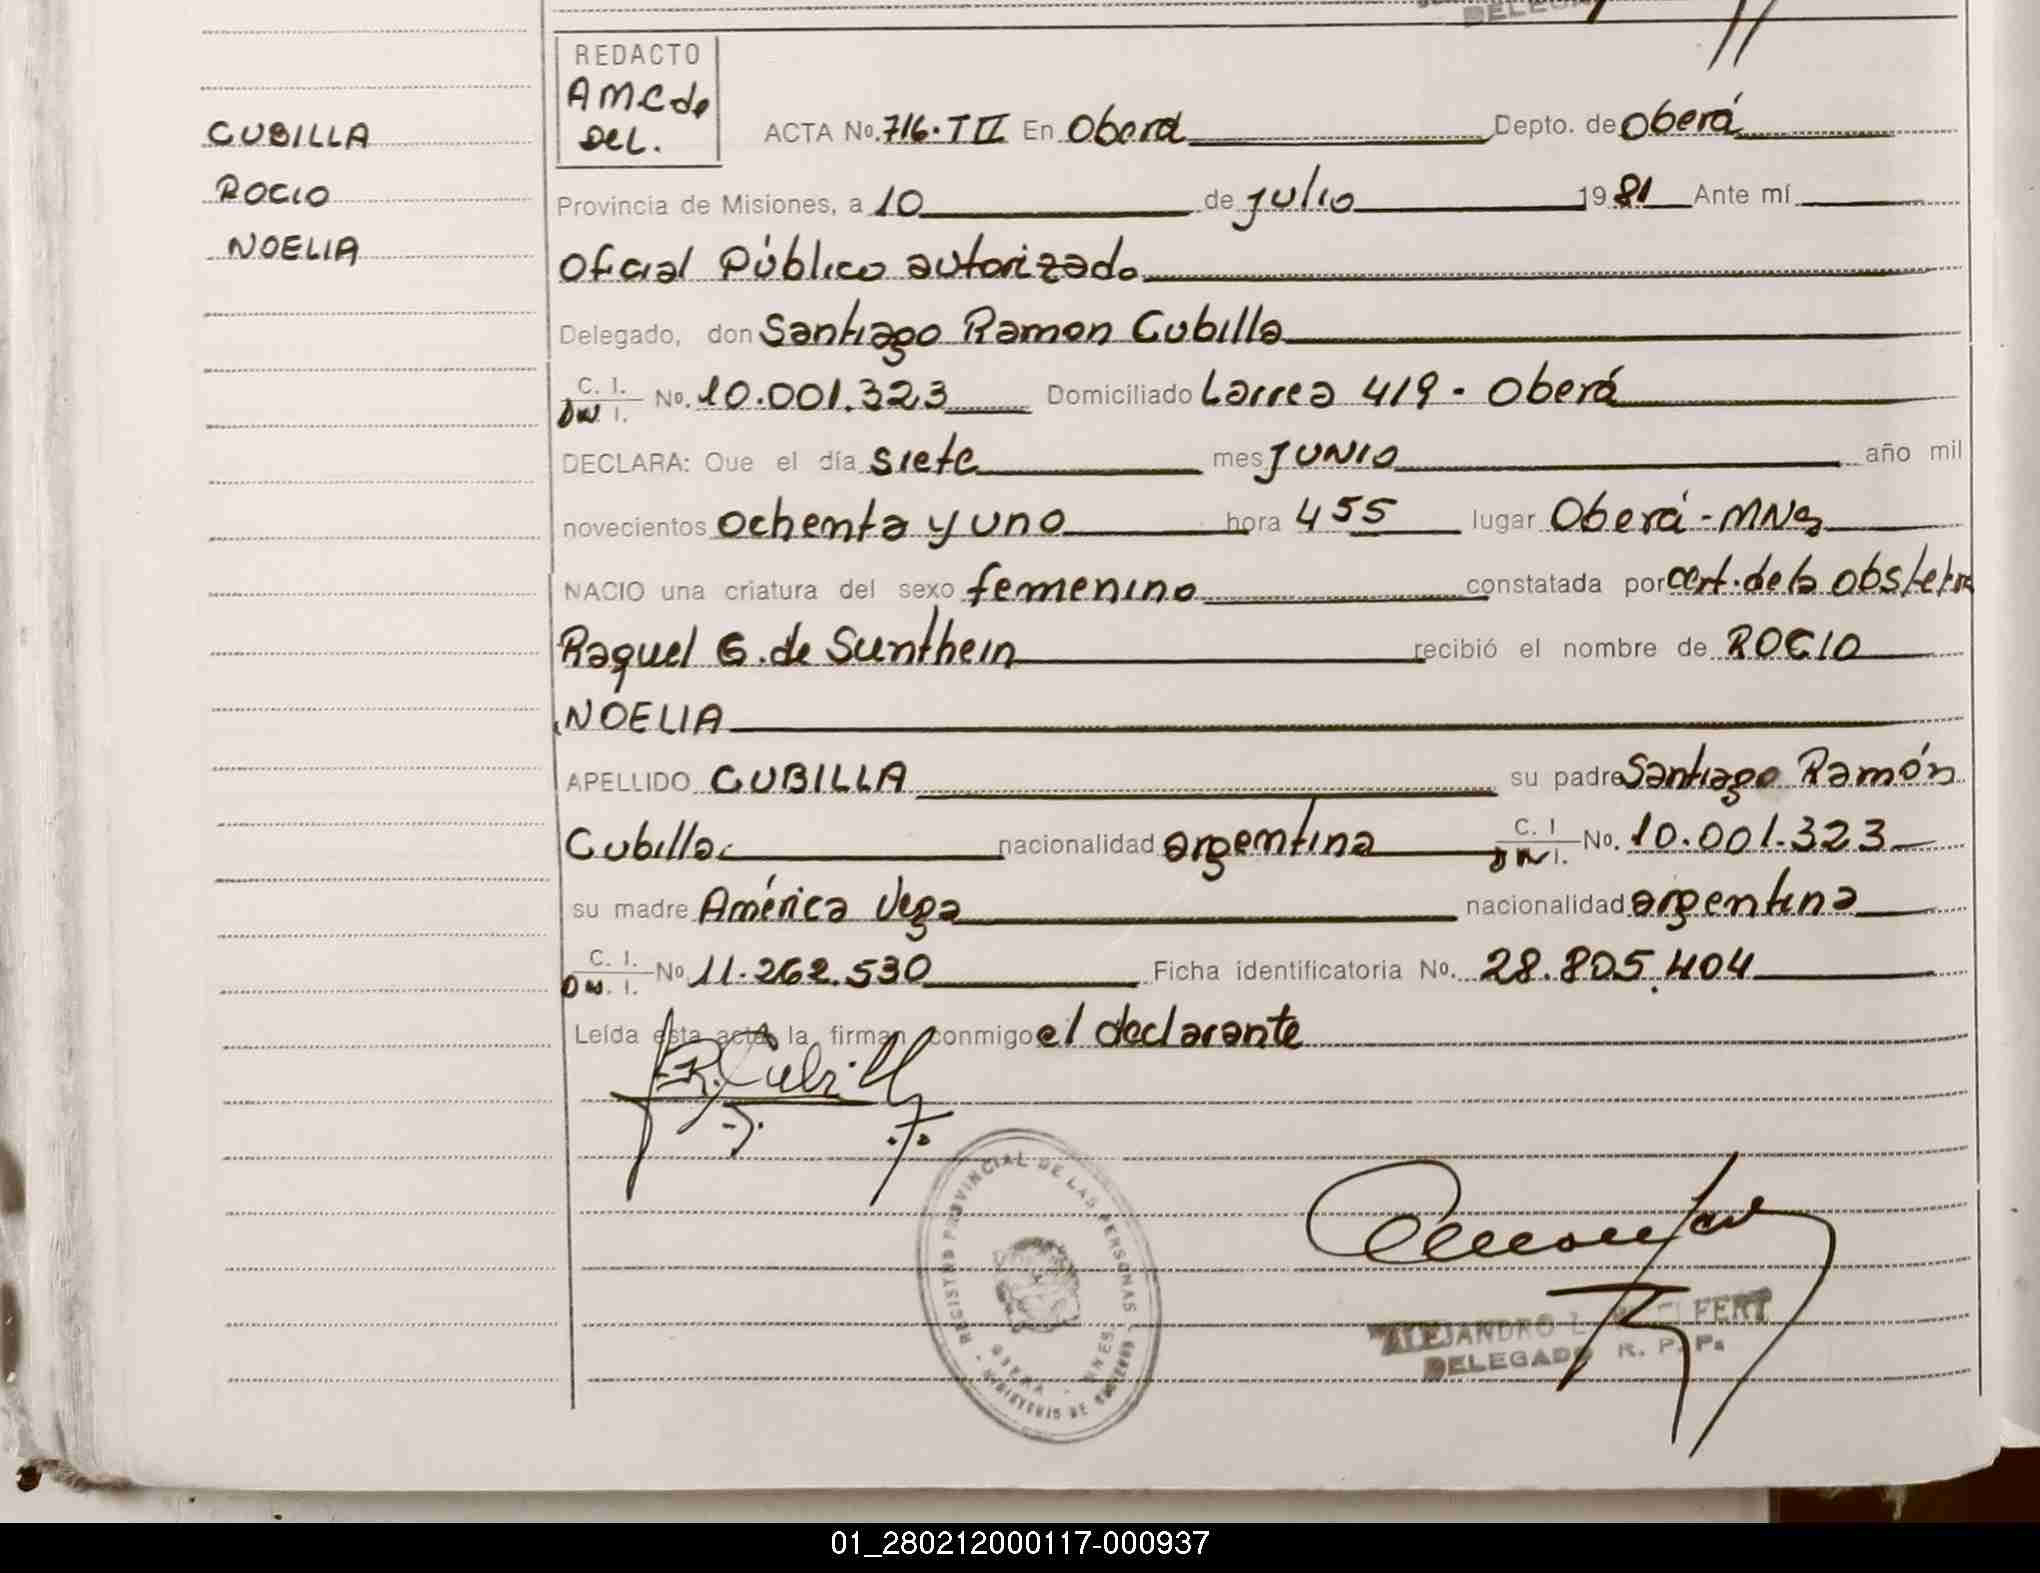 CUBILLA
ROCIO
NOELIA
REDACTO
AMC de
DEL.
ACTA No. 716. T III En Oberá Depto. de Oberá
Provincia de Misiones, a 10 de julio 1981 Ante mí
Oficial Público autorizado
Delegado, don Santiago Ramon Cubilla
C. I.
DN I. No. 10.001.323 Domiciliado Larrea 419 - Oberá
DECLARA: Que el día siete mes JUNIO año mil
novecientos ochenta y uno hora 4 55 lugar Oberá - MNes
NACIO una criatura del sexo femenino constatada por cert. de la obstetra
Raquel G. de Sunthein recibió el nombre de ROCIO
NOELIA
APELLIDO CUBILLA su padre Santiago Ramón
Cubilla nacionalidad argentina C. I
DN I. No. 10.001.323
su madre América Vega nacionalidad argentina
C. I.
DN. I. No 11.262.530 Ficha identificatoria No. 28.805.404
Leída esta acta la firman conmigo el declarante
REGISTRO PROVINCIAL DE LAS PERSONAS
OBERA - MNES.
ALEJANDRO L.
DELEGADO R. P. P.
01_280212000117-000937